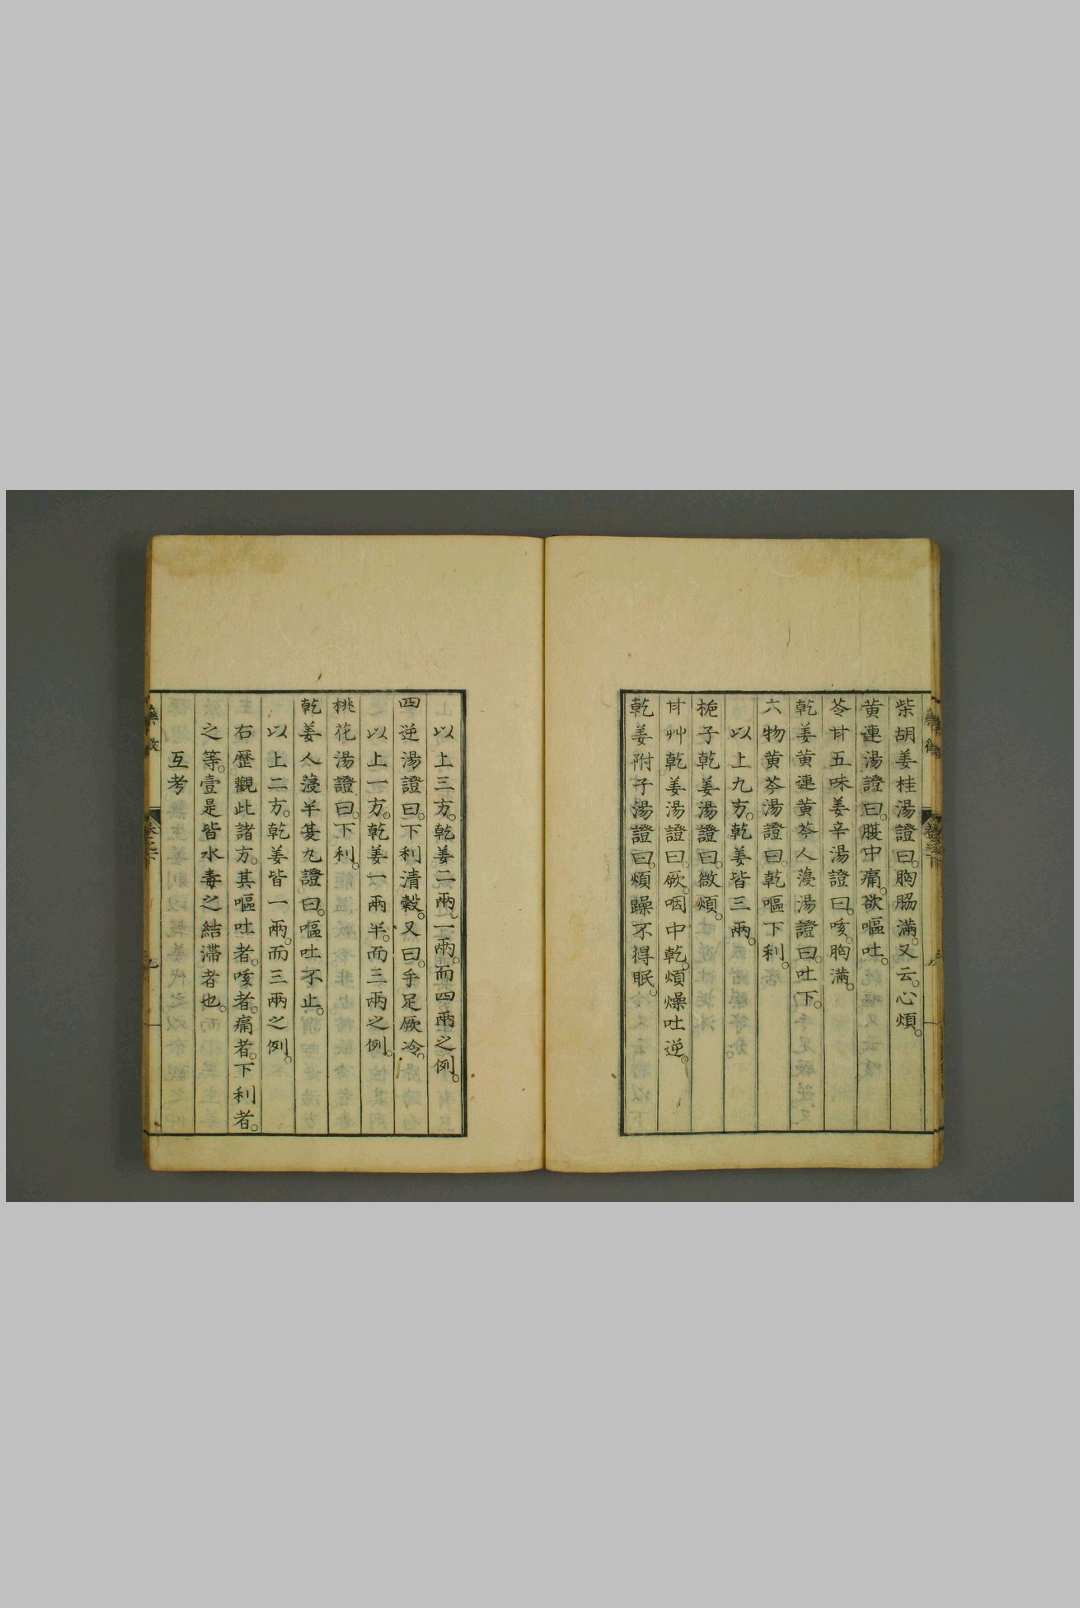 柴胡姜桂湯證曰。胸脇滿。又云。心煩。
黃連湯證曰。腹中痛。欲嘔吐。
苓甘五味姜辛湯證曰。咳。胸滿。
乾姜黃連黃芩人薓湯證曰。吐下。
六物黃芩湯證曰。乾嘔下利。
以上九方。乾姜皆三兩。
梔子乾姜湯證曰。微煩。
甘艸乾姜湯證曰。厥。咽中乾。煩燥吐逆。
乾姜附子湯證曰。煩躁不得眠。
以上三方。乾姜二兩。一兩。而四兩之例。
四逆湯證曰。下利清穀。又曰。手足厥冷。
以上一方。乾姜一兩半。而三兩之例。
桃花湯證曰。下利。
乾姜人薓半夏丸證曰。嘔吐不止。
以上二方。乾姜皆一兩。而三兩之例。
右歷觀此諸方。其嘔吐者。咳者。痛者。下利者。
之等。壹是皆水毒之結滯者也。
互考